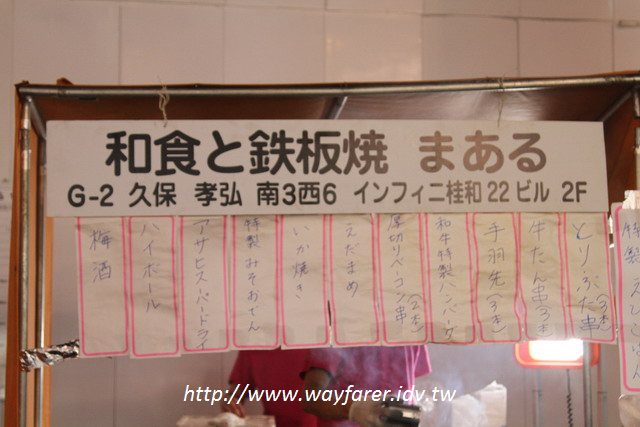 和食と鉄板焼 まある
G-2 久保 孝弘 南3西6 インフィニ桂和22ビル 2F
とり、ぶた串(3本)
牛たん串(3本)
手羽先(3本)
和牛特製ハンバーグ
厚切りベーコン串(2本)
えだまめ
いか焼き
特製みそおでん
アサヒスーパードライ
ハイボール
梅酒
http://www.wayfarer.idv.tw